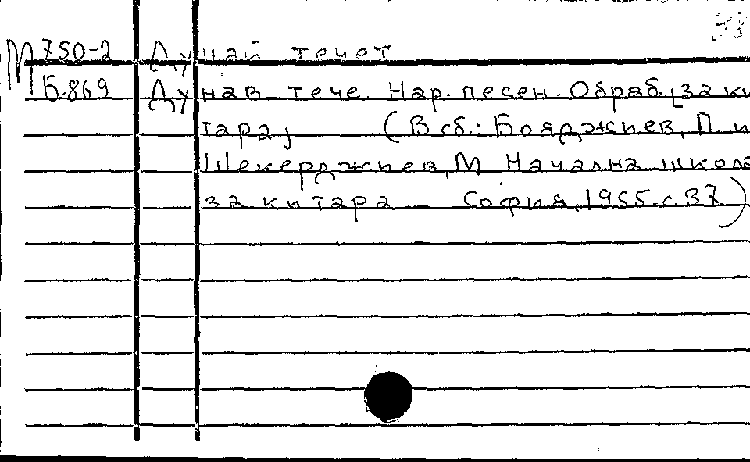 М 750-2 Дунай течет
Б.869 Дунав тече. Нар. песен. Обраб. [за ки
тара] (В сб.: Бояджиев, П. и
Шекерджиев, М. Начална школа
за китара. София, 1955. с. 37)